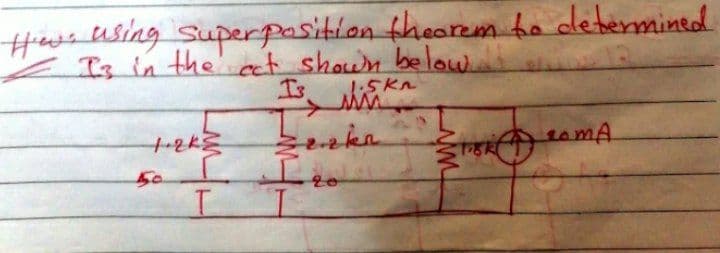 H.w: using superposition theorem to determined
I3 in the cct shown below
I3 1.5kΩ
1.2k 2.2kΩ 1.8k 20mA
50 20